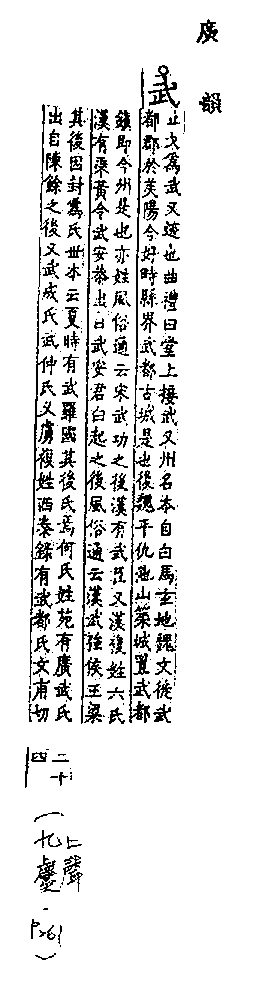 廣韻
武
止戈為武又迹也曲禮曰堂上接武又州名本自白馬氐地魏文徙武
都郡於美陽今好畤縣界武都古城是也後魏平仇池山築城置武都
鎮即今州是也亦姓風俗通云宋武功之後漢有武臣又漢複姓六氏
漢有乘黃令武安恭出自武安君白起之後風俗通云漢武強侯王梁
其後因封為氏世本云夏時有武羅國其後氏焉何氏姓苑有廣武氏
出自陳餘之後又武成氏武仲氏又虜複姓西秦錄有武都氏文甫切
二十四
(上聲
九麌
-
P261)